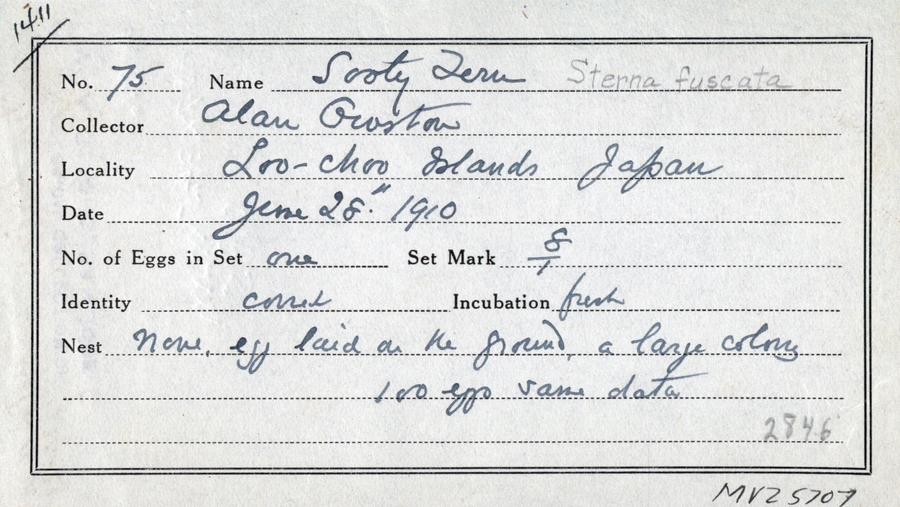 1411
No. 75 Name Sooty Tern Sterna fuscata
Collector Alan Owston
Locality Loo-choo Islands Japan
Date June 28" 1910
No. of Eggs in Set one Set Mark 8/1
Identity correct Incubation fresh
Nest None, egg laid on the ground, a large colony
100 eggs same data
2846
MVZ 5707